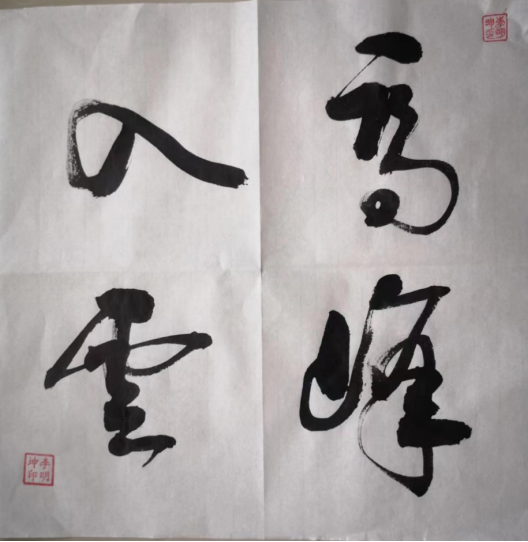 高峰
入雲
李明
坤印